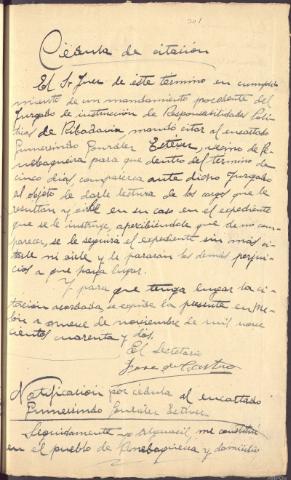 201
Cédula de citación
El Sr Juez de este término en cumplimiento
miento de un mandamiento procedente del
Juzgado de instrucción de Responsabilidades Polí-
ticas de Ribadavia, mandó citar al encartado
Gumersindo González Estévez, vecino de
para que dentro del término de
cinco días comparezca ante dicho Juzgado
al objeto de darle lectura de los cargos que le
resultan y oirle en su caso en el expediente
que se le instruye, apercibiéndole que de no com-
parecer, se le seguirá el expediente sin más ci-
tarle ni oirle y le pararán los demás perjui-
cios a que haya lugar.
Y para que tenga lugar la ci-
tación acordada, se expide la presente en Me-
lón a nueve de noviembre de mil nove-
cientos cuarenta y dos.
El Secretario
Jose de Castro
Notificación por cédula al encartado
Gumersindo González Estévez
Seguidamente yo Alguacil, me constituí
en el pueblo de y domicilio